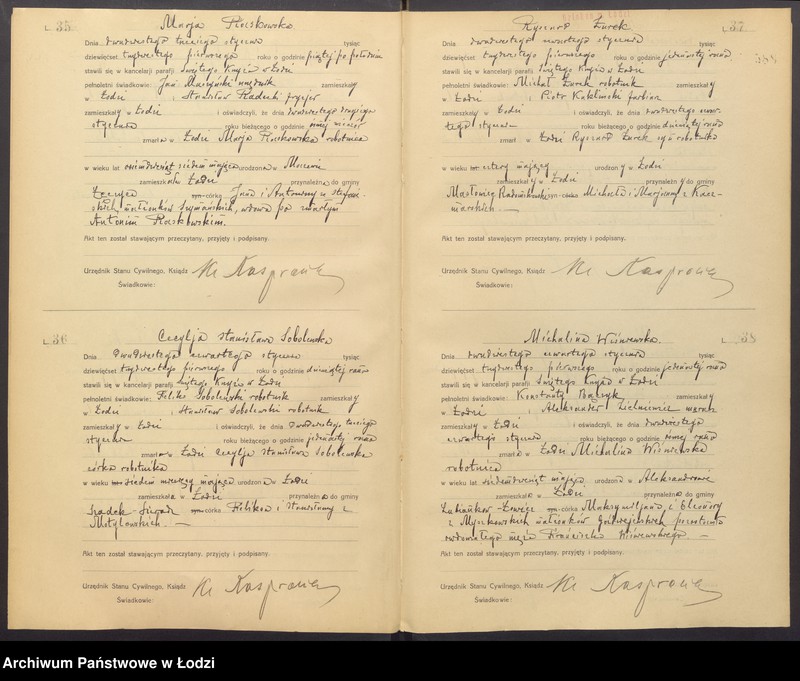 L. 35
Marja Płoszkowska
Dnia dwudziestego trzeciego stycznia tysiąc
dziewięćset trzydziestego pierwszego roku o godzinie piątej po południu
stawili się w kancelarji parafji Świętego Krzyża w Łodzi
pełnoletni świadkowie: Jan zamieszkały
w Łodzi i Stanisław fryzjer
zamieszkały w Łodzi i oświadczyli, że dnia dwudziestego drugiego
stycznia roku bieżącego o godzinie ósmej wieczór
zmarła w Łodzi Marja Płoszkowska robotnica
w wieku lat osiemdziesiąt siedem mająca urodzona w
zamieszkała w Łodzi przynależna do gminy
córka Jana i Antoniny z
małżonków Szymańskich, wdowa po zmarłym
Antonim Płoszkowskim.
Akt ten został stawającym przeczytany, przyjęty i podpisany.
Urzędnik Stanu Cywilnego, Ksiądz
Świadkowie:
L. 36
Cecylja Stanisława Sobolewska
Dnia dwudziestego czwartego stycznia tysiąc
dziewięćset trzydziestego pierwszego roku o godzinie dziewiątej rano
stawili się w kancelarji parafji Świętego Krzyża w Łodzi
pełnoletni świadkowie: Feliks Sobolewski robotnik zamieszkały
w Łodzi i Stanisław Sobolewski robotnik
zamieszkały w Łodzi i oświadczyli, że dnia dwudziestego trzeciego
stycznia roku bieżącego o godzinie jedenastej rano
zmarła w Łodzi Cecylja Stanisława Sobolewska
córka robotnika
w wieku lat siedem miesięcy mająca urodzona w Łodzi
zamieszkała w Łodzi przynależna do gminy
córka Feliksa i Stanisławy z
Motylewskich. —
Akt ten został stawającym przeczytany, przyjęty i podpisany.
Urzędnik Stanu Cywilnego, Ksiądz
Świadkowie:
L. 37
Ryszard Żurek
Dnia dwudziestego czwartego stycznia tysiąc
dziewięćset trzydziestego pierwszego roku o godzinie jedenastej rano
stawili się w kancelarji parafji Świętego Krzyża w Łodzi
pełnoletni świadkowie: Michał Żurek robotnik zamieszkały
w Łodzi i Piotr farbiarz
zamieszkały w Łodzi i oświadczyli, że dnia dwudziestego czwartego
stycznia roku bieżącego o godzinie dziewiątej rano
zmarł w Łodzi Ryszard Żurek syn robotnika
w wieku lat cztery mający urodzony w Łodzi
zamieszkały w Łodzi przynależny do gminy
Masłowice Radomskowskiej syn Michała i Marjanny z Kaczmarskich. —
Akt ten został stawającym przeczytany, przyjęty i podpisany.
Urzędnik Stanu Cywilnego, Ksiądz
Świadkowie:
L. 38
Michalina Wiśniewska.
Dnia dwudziestego czwartego stycznia tysiąc
dziewięćset trzydziestego pierwszego roku o godzinie jedenastej rano
stawili się w kancelarji parafji Świętego Krzyża w Łodzi
pełnoletni świadkowie: Konstanty zamieszkały
w Łodzi i Aleksander
zamieszkały w Łodzi i oświadczyli, że dnia dwudziestego
czwartego stycznia roku bieżącego o godzinie ósmej rano
zmarła w Łodzi Michalina Wiśniewska
robotnica
w wieku lat siedemdziesiąt mająca urodzona w Aleksandrowie
zamieszkała w Łodzi przynależna do gminy
córka Maksymiljana i Eleonory
z Myszkowskich małżonków
męża Franciszka Wiśniewskiego. —
Akt ten został stawającym przeczytany, przyjęty i podpisany.
Urzędnik Stanu Cywilnego, Ksiądz
Świadkowie:
Archiwum Państwowe w Łodzi